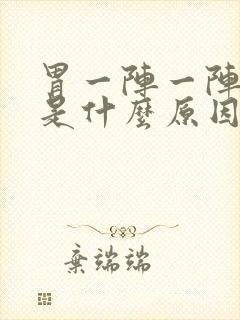 胃一陣一陣
是什麼原因
棄端端